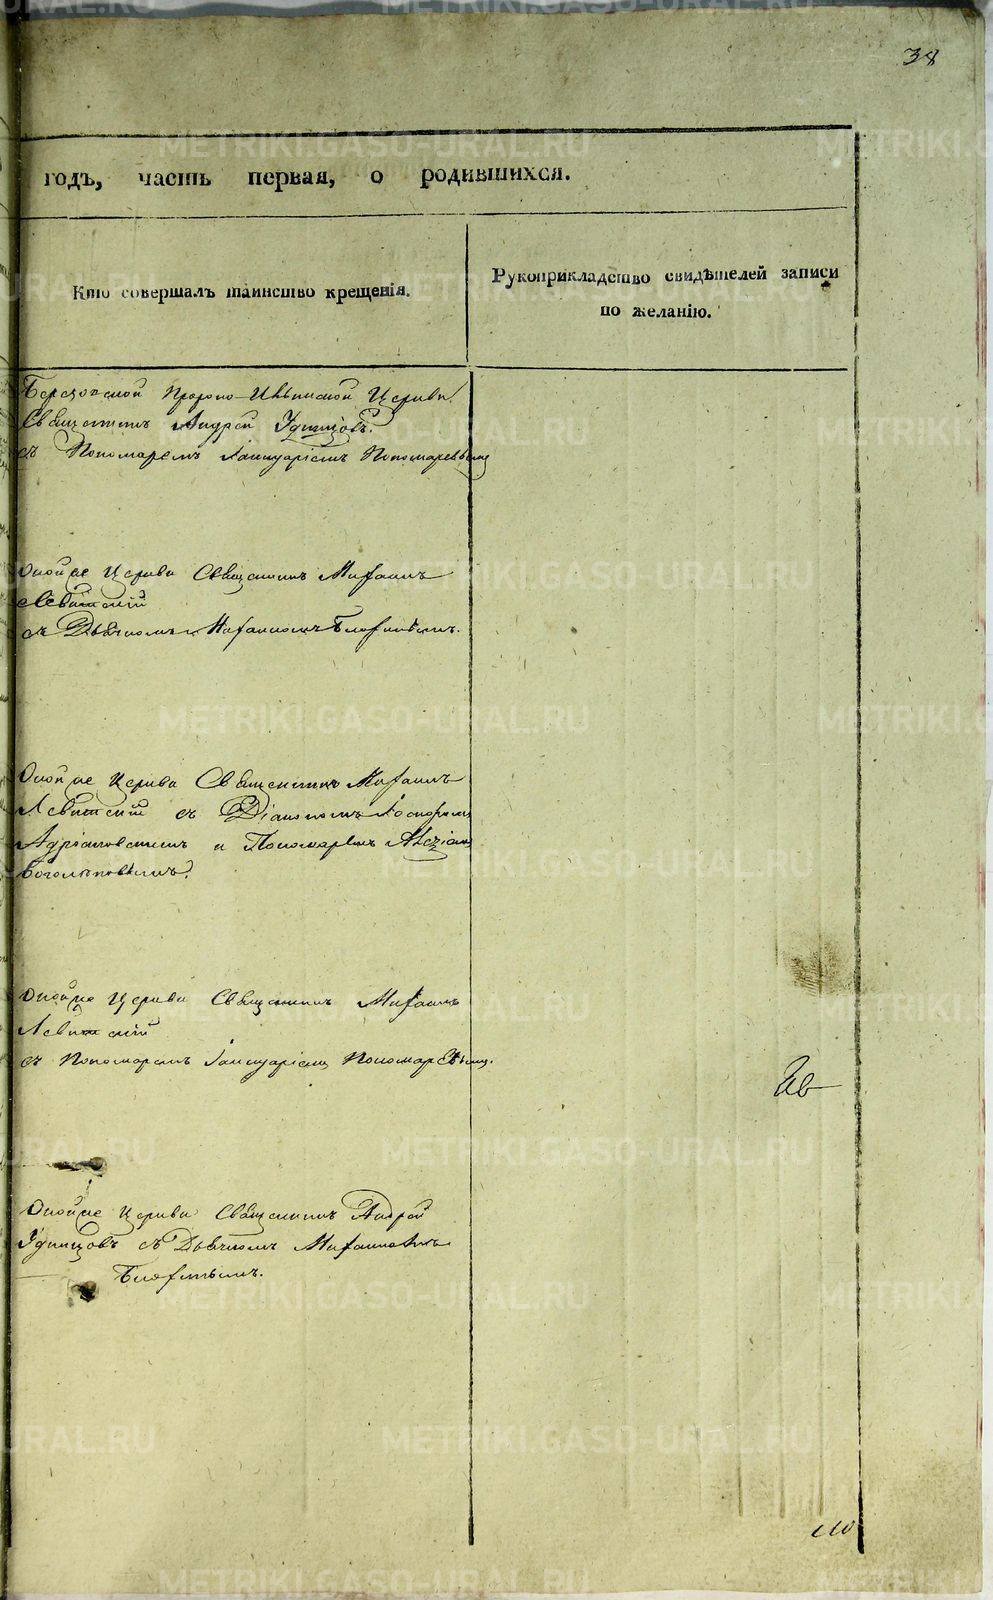 38
годъ, часть первая, о родившихся.
Кто совершалъ таинство крещенія.
Рукоприкладство свидѣтелей записи
по желанію.
Березовской Пророко-Ильинской Церкви
Священникъ Андрей Удинцовъ.
съ Пономаремъ Іаннуаріемъ Пономаревымъ
Оной же Церкви Священникъ Михаилъ
Левитскій
съ Дьячкомъ
Оной же Церкви Священникъ Михаилъ
Левитскій съ Діакономъ
Адріановскимъ и Пономаремъ
Боголюповымъ.
Оной же Церкви Священникъ Михаилъ
Левитскій
съ Пономаремъ Іаннуаріемъ Пономаревымъ.
Оной же Церкви Священникъ Андрей
Удинцовъ съ Дьячкомъ
METRIKI.GASO-URAL.RU